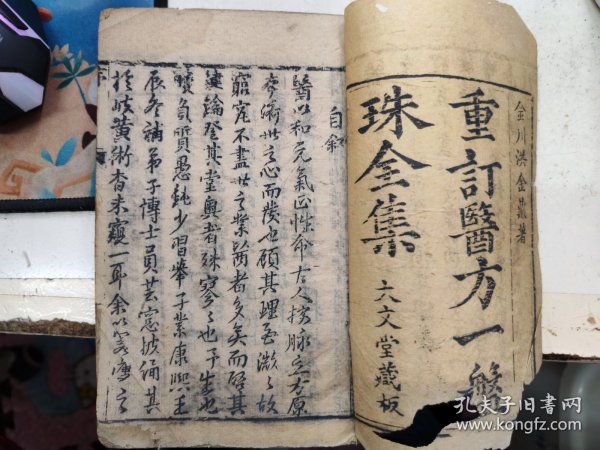 金川洪金鼎著
重訂醫方一盤
珠全集
六文堂藏板
自叙
醫以和元氣正性命古人按脉立方原
濟世之心而發也顧其理至微々故
窮究不盡世之業醫者多矣而
論登其堂奧者殊寥々也予生也
質愚鈍少習舉子業康熙壬
辰冬補弟子博士員芸窓披誦其
於岐黃術杳未窺一耳余以
孔夫子旧书网
www.kongfz.com